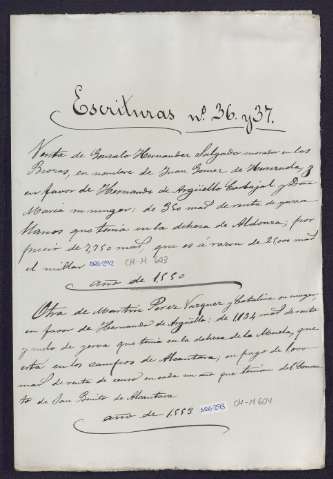 Escrituras nº 36. y 37.
Venta de Gonzalo Hernandez Salgado morador en las
Brozas, en nombre de Juan Gomez de Hurruado, y
en favor de Hernando de Argüello Carbajal, y Doña
Maria su muger: de 350 mrs de renta de yerva
llanos que tenia en la dehesa de Aldonza; por
precio de 8,750 mrs, que es á razon de 25,000 mrs
el millar CH-M 603
año de 1550
Otra de Martin Perez Vazquez, y Catalina su muger,
en favor de Hernando de Argüello; de 1,624 mrs de renta
y medio de yerva que tenia en la dehesa de la Mueda, que
está en los campos de Alcantara; en pago de
mrs de renta de censo en cada un año que tenian del Conven
to de San Benito de Alcantara
año de 1553 CH-M 604